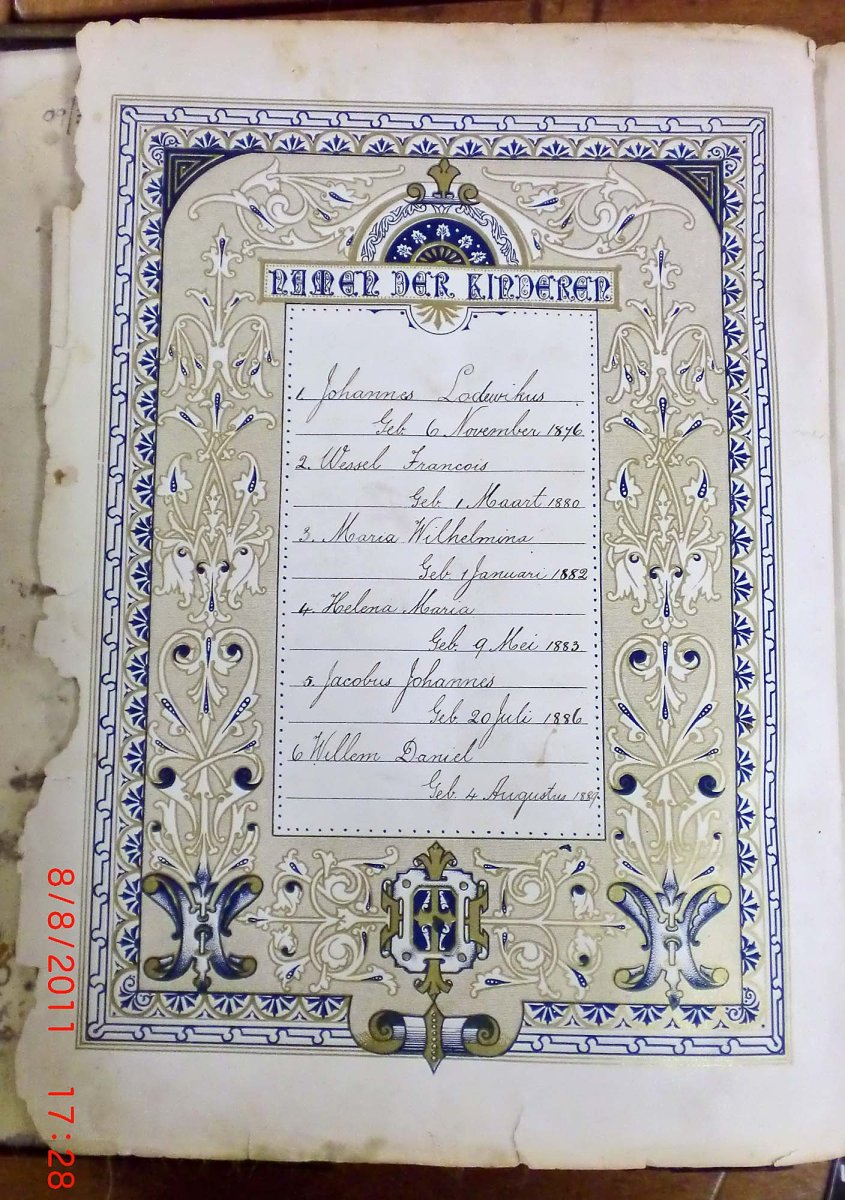 NAMEN DER KINDEREN
1. Johannes Lodewikus
Geb. 6 November 1876
2. Wessel Francois
Geb. 1 Maart 1880
3. Maria Wilhelmina
Geb. 1 Januari 1882
4. Helena Maria
Geb. 9 Mei 1883
5. Jacobus Johannes
Geb. 20 Juli 1886
6 Willem Daniel
Geb. 4 Augustus
8/8/2011 17:28